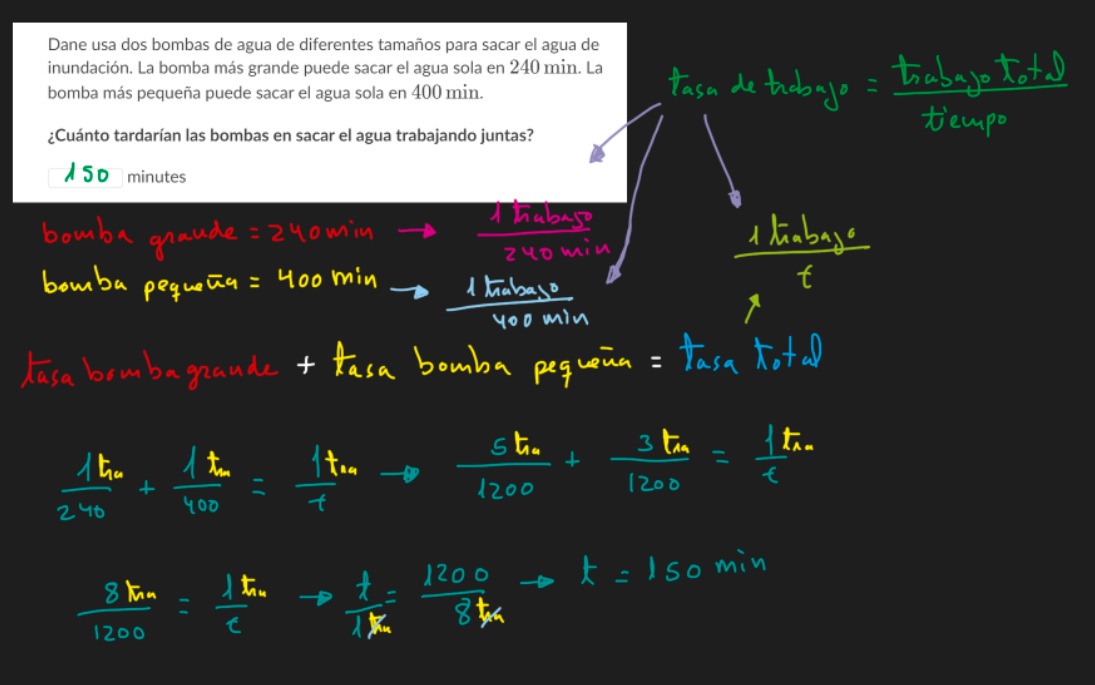 Dane usa dos bombas de agua de diferentes tamaños para sacar el agua de
inundación. La bomba más grande puede sacar el agua sola en 240 min. La
bomba más pequeña puede sacar el agua sola en 400 min.
¿Cuánto tardarían las bombas en sacar el agua trabajando juntas?
150 minutes
tasa de trabajo = trabajo total / tiempo
bomba grande = 240 min → 1 trabajo / 240 min
1 trabajo / t
bomba pequeña = 400 min → 1 trabajo / 400 min
tasa bomba grande + tasa bomba pequeña = tasa total
1 tra / 240 + 1 tra / 400 = 1 tra / t → 5 tra / 1200 + 3 tra / 1200 = 1 tra / t
8 tra / 1200 = 1 tra / t → t / 1 tra = 1200 / 8 tra → t = 150 min